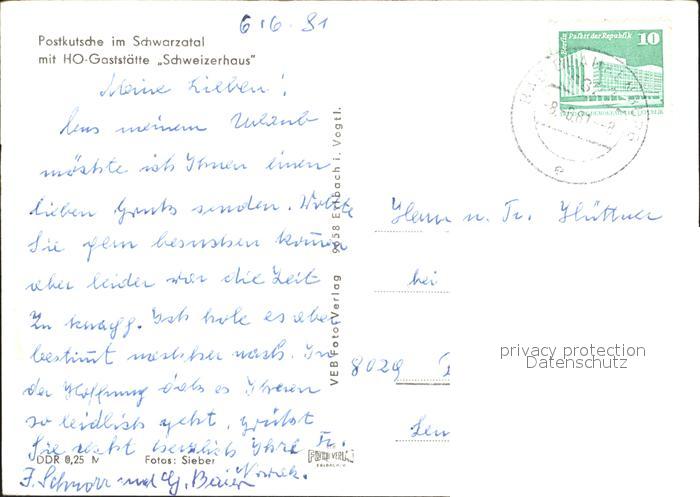 6.6.81
Postkutsche im Schwarzatal
mit HO-Gaststätte „Schweizerhaus"
Meine Lieben!
Aus meinem Urlaub
möchte ich Ihnen einen
lieben Gruß senden. Wollte
Sie gern besuchen kommen
aber leider war die Zeit
zu knapp. Ich hole es aber
bestimmt nachher nach. In
der Hoffnung daß es Ihnen
so leidlich geht, grüßt
Sie recht herzlich Ihre Fr.
Nowak.
F. Schnorr und Baier
DDR 0,25 M
Fotos: Sieber
VEB Foto-Verlag 9658 Erlbach i. Vogtl.
FOTO-VERLAG
ERLBACH/V.
Berlin Palast der Republik
10
Herrn u. Fr. Hüttner
bei
8029
privacy protection
Datenschutz